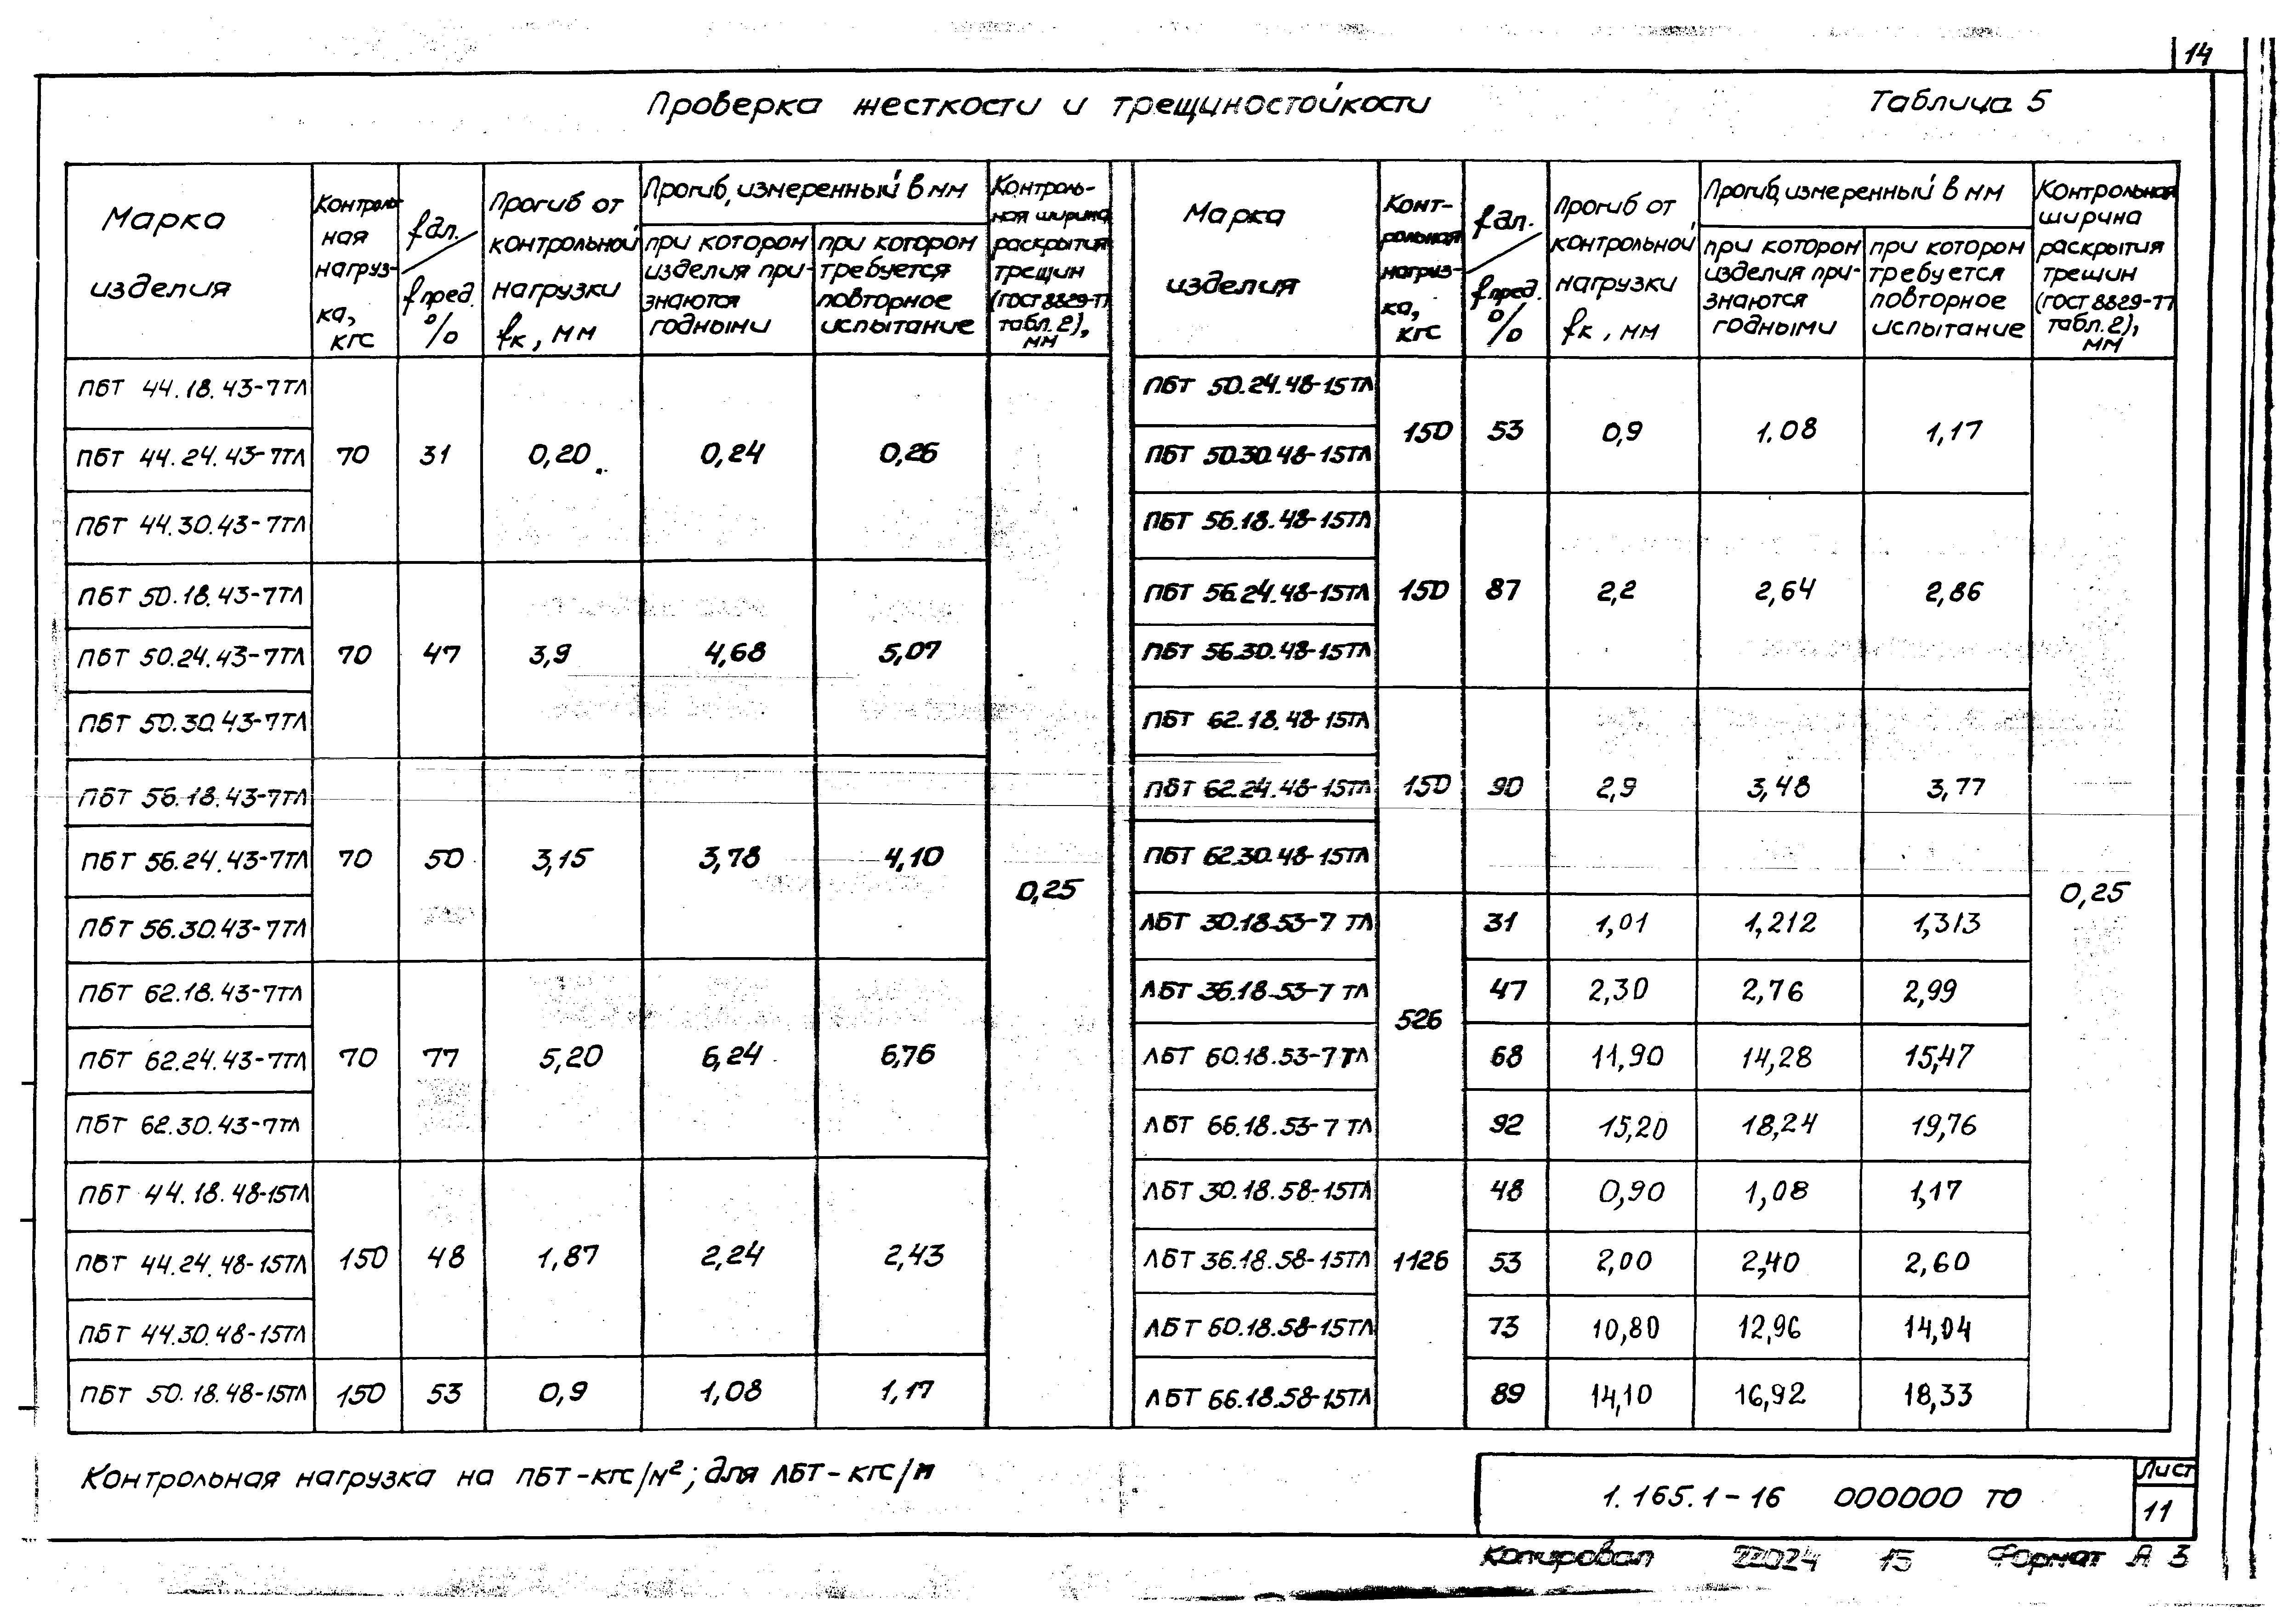 14
Проверка жесткости и трещиностойкости
Таблица 5
Марка изделия
Контрольная нагрузка, кгс
fдл. / fпред. %
Прогиб от контрольной нагрузки fк, мм
Прогиб, измеренный в мм
при котором изделия признаются годными
при котором требуется повторное испытание
Контрольная ширина раскрытия трещин (ГОСТ 8829-77 табл. 2), мм
ПБТ 44.18.43-7ТЛ
ПБТ 44.24.43-7ТЛ 70 31 0,20 0,24 0,26
ПБТ 44.30.43-7ТЛ
ПБТ 50.18.43-7ТЛ
ПБТ 50.24.43-7ТЛ 70 47 3,9 4,68 5,07
ПБТ 50.30.43-7ТЛ
ПБТ 56.18.43-7ТЛ
ПБТ 56.24.43-7ТЛ 70 50 3,15 3,78 4,10
0,25
ПБТ 56.30.43-7ТЛ
ПБТ 62.18.43-7ТЛ
ПБТ 62.24.43-7ТЛ 70 77 5,20 6,24 6,76
ПБТ 62.30.43-7ТЛ
ПБТ 44.18.48-15ТЛ
ПБТ 44.24.48-15ТЛ 150 48 1,87 2,24 2,43
ПБТ 44.30.48-15ТЛ
ПБТ 50.18.48-15ТЛ 150 53 0,9 1,08 1,17
Марка изделия
Контрольная нагрузка, кгс
fдл. / fпред. %
Прогиб от контрольной нагрузки fк, мм
Прогиб, измеренный в мм
при котором изделия признаются годными
при котором требуется повторное испытание
Контрольная ширина раскрытия трещин (ГОСТ 8829-77 табл. 2), мм
ПБТ 50.24.48-15ТЛ
150 53 0,9 1.08 1,17
ПБТ 50.30.48-15ТЛ
ПБТ 56.18.48-15ТЛ
ПБТ 56.24.48-15ТЛ 150 87 2,2 2,64 2,86
ПБТ 56.30.48-15ТЛ
ПБТ 62.18.48-15ТЛ
ПБТ 62.24.48-15ТЛ 150 90 2,9 3,48 3,77
ПБТ 62.30.48-15ТЛ
0,25
ЛБТ 30.18.53-7 ТЛ 31 1,01 1,212 1,313
ЛБТ 36.18.53-7 ТЛ 47 2,30 2,76 2,99
526
ЛБТ 60.18.53-7 ТЛ 68 11,90 14,28 15,47
ЛБТ 66.18.53-7 ТЛ 92 15,20 18,24 19,76
ЛБТ 30.18.58-15ТЛ 48 0,90 1,08 1,17
ЛБТ 36.18.58-15ТЛ 1126 53 2,00 2,40 2,60
ЛБТ 60.18.58-15ТЛ 73 10,80 12,96 14,04
ЛБТ 66.18.58-15ТЛ 89 14,10 16,92 18,33
Контрольная нагрузка на ПБТ-кгс/м²; для ЛБТ-кгс/м
1.165.1-16 000000 ТО
Лист
11
Копировал 22024 15 Формат А3